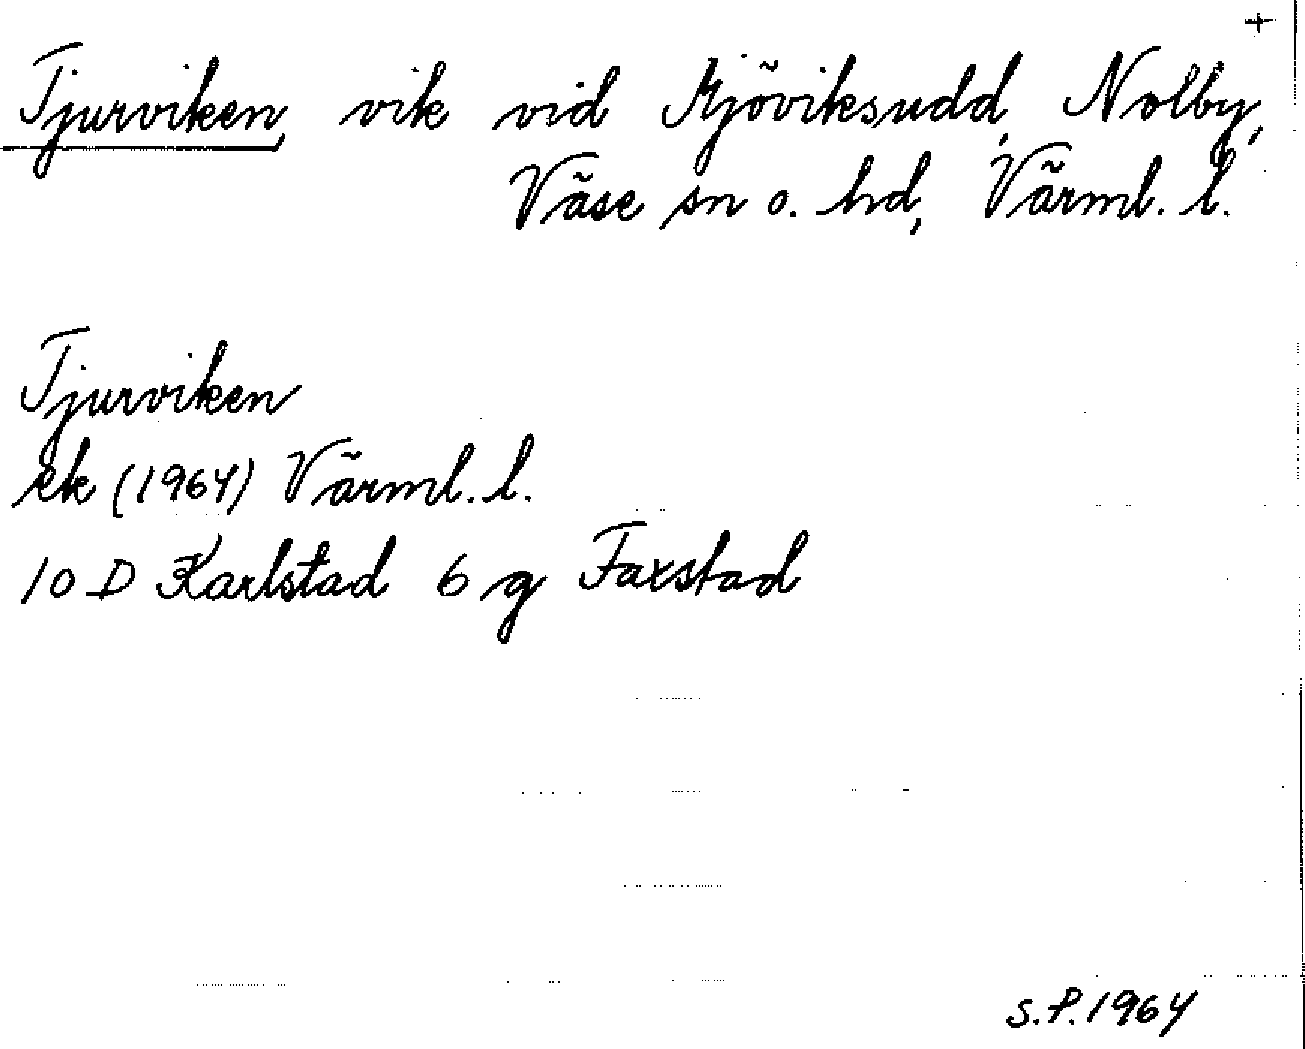 +
Tjurviken, vik vid Mjöviksudd, Nolby,
Väse sn o. hd, Värml. l.
Tjurviken
ek (1964) Värml. l.
10 D Karlstad 6 g Faxstad
S.P. 1964